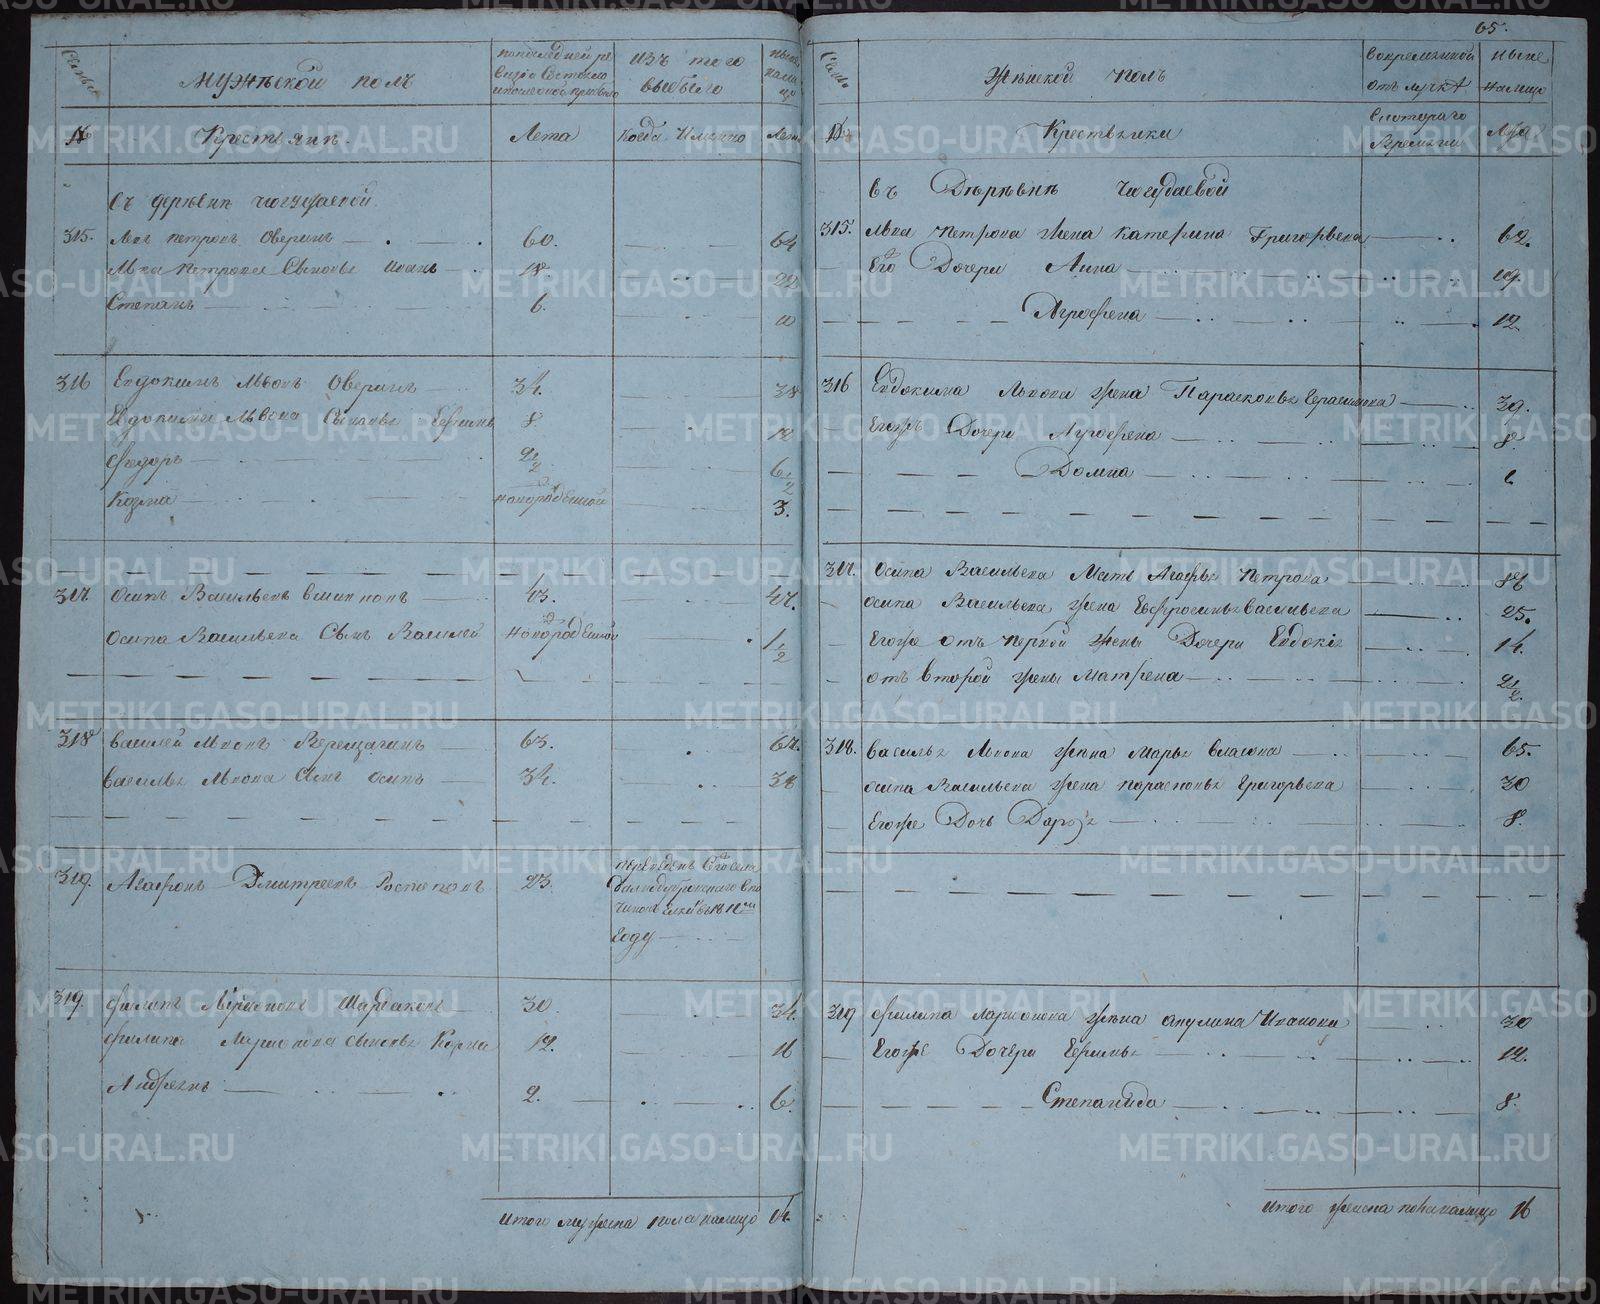 65.
Семьи
Мужеской полъ
по последней ревизiи состояло и после оной прибыло
изъ того выбыло
ныне налицо
№
Крестьяне.
Лета
Когда Имянно
Лета
въ деревне Чюгуцаевой.
315. Левъ Петровъ Оверинъ 60. 64
Льва Петрова Сыновья Иванъ 18. 22
Степанъ 6. 10
316 Евдокимъ Львовъ Оверинъ 34. 38
Евдокима Львова Сыновья Ефимъ 8 12
Федоръ 2 1/2 6 1/2
Козма новорожденной 3.
317. Осипъ Васильевъ 43. 47.
Осипа Васильева Сынъ Василей новорожденной 1/2
318 Василей Львовъ Верещагинъ 63. 67.
Василья Львова Сынъ Осипъ 34. 38
319. Агафонъ Дмитреевъ 23. переведенъ
году
319. Филипъ Ларионовъ 30 34.
Филипа Ларионова сыновья Карпа 12. 16
Андреянъ 2. 6.
Итого мужеска пола налицо 14.
Семьи
Женской полъ
во временной отлучке
ныне налицо
№
Крестьянки
с котораго времени
Лета
въ Деревне Чюгудаевой
315. Льва Петрова жена Катерина Григорьева 62.
Его Дочери Анна 19.
Агрофена 12
316 Евдокима Львова жена Парасковья Герасимова 39.
Егожъ Дочери Агрофена 8
Домна 6
317. Осипа Васильева Мать Агафья Петрова
Осипа Васильева жена Евфросинья Васильева 25.
Егоже отъ первой жены Дочери Евдокiя 14.
отъ второй жены Матрена 2 1/2.
318. Василья Львова жена Марья Власова 65.
Осипа Васильева жена Парасковья Григорьева 30
Егоже Дочь Дарья 8.
319 Филипа Ларионова жена Акулина Иванова 30
Егоже Дочери Ефимья 12.
Степанида 8.
Итого женска пола налицо 16
METRIKI.GASO-URAL.RU